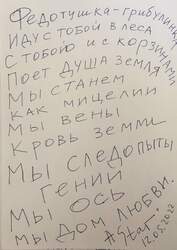 Федотушка-грибулинка
Иду с тобой в леса
С тобою и с корзинами
Поет душа земля
Мы станем
как мицелии
Мы вены
Кровь земли
Мы следопыты
Гении
Мы ось
Мы дом любви.
12.05.2022